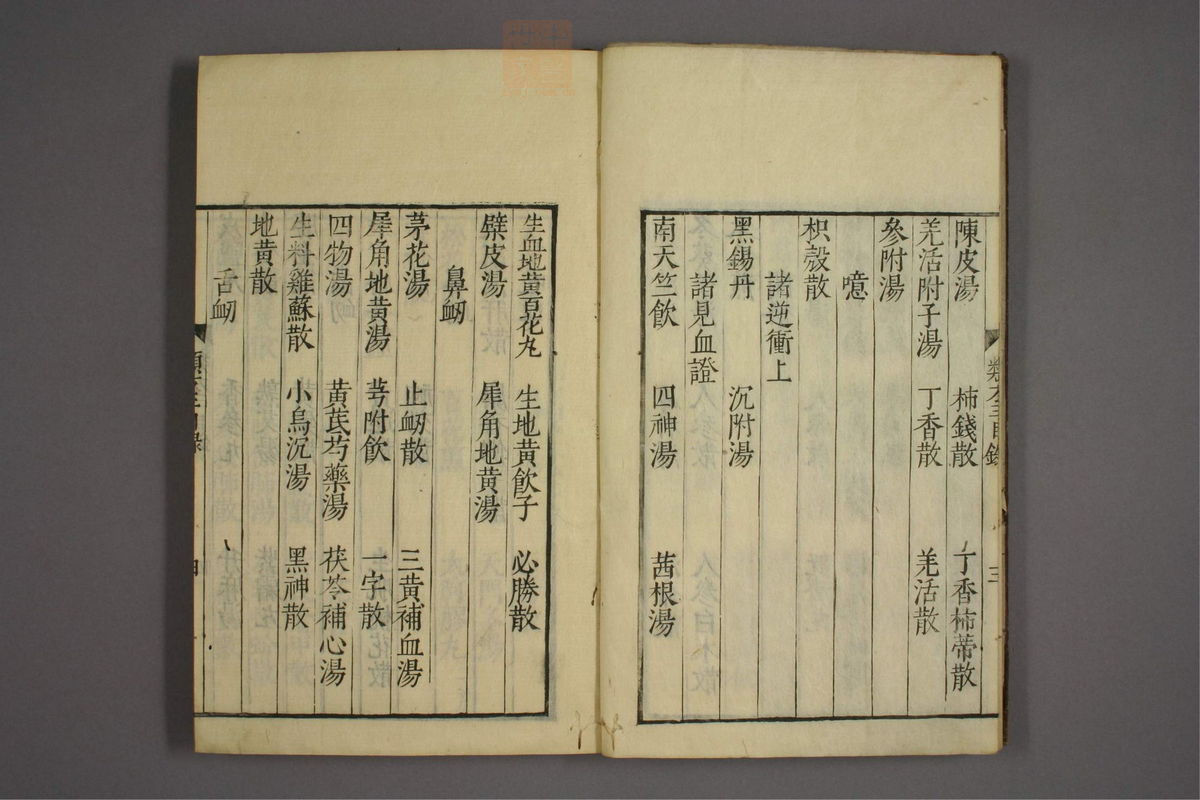 陳皮湯 柿錢散 丁香柿蒂散
羌活附子湯 丁香散 羌活散
參附湯
噫
枳殼散
諸逆衝上
黑錫丹 沉附湯
諸見血證
南天竺飲 四神湯 茜根湯
生血地黃百花丸 生地黃飲子 必勝散
檗皮湯 犀角地黃湯
鼻衂
茅花湯 止衂散 三黃補血湯
犀角地黃湯 芎附飲 一字散
四物湯 黃芪芍藥湯 茯苓補心湯
生料雞蘇散 小烏沉湯 黑神散
地黃散
舌衂